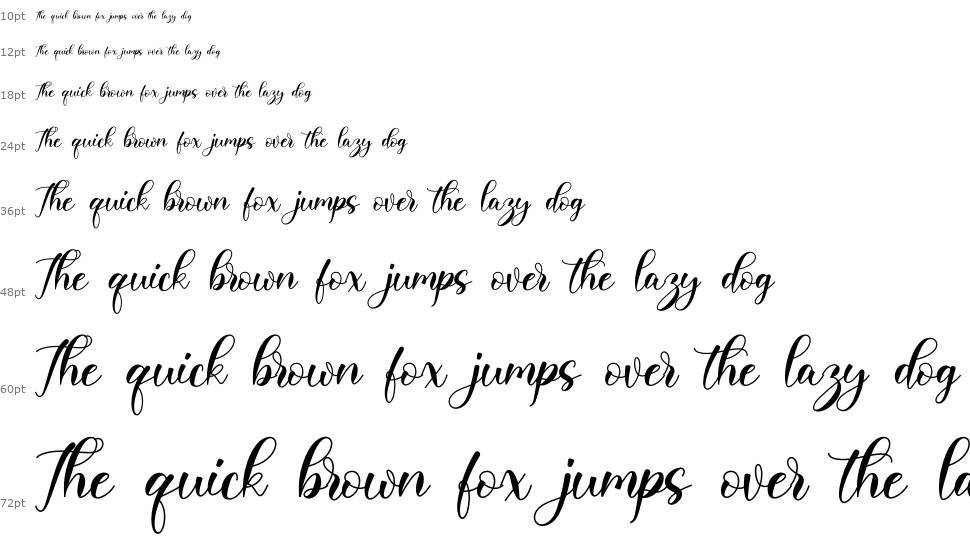 10pt The quick brown fox jumps over the lazy dog
12pt The quick brown fox jumps over the lazy dog
18pt The quick brown fox jumps over the lazy dog
24pt The quick brown fox jumps over the lazy dog
36pt The quick brown fox jumps over the lazy dog
48pt The quick brown fox jumps over the lazy dog
60pt The quick brown fox jumps over the lazy dog
72pt The quick brown fox jumps over the la